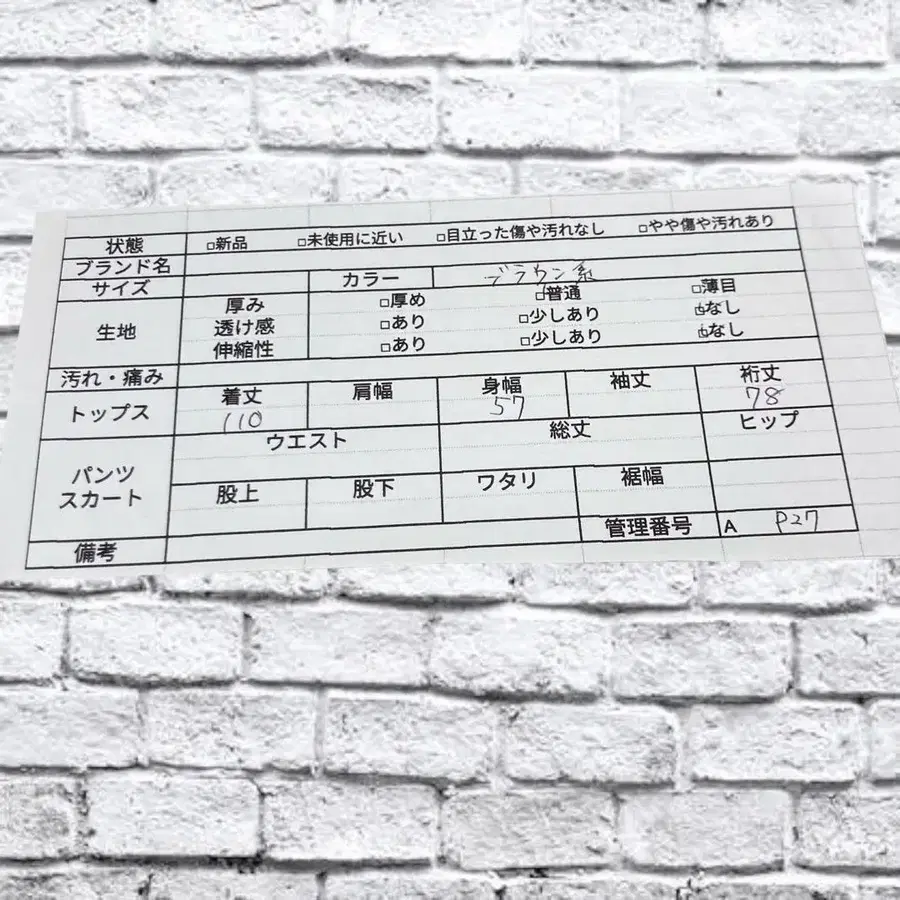 状態 □新品 □未使用に近い □目立った傷や汚れなし □やや傷や汚れあり
ブランド名
サイズ カラー ブラウン系
生地 厚み □厚め □普通 □薄目
透け感 □あり □少しあり □なし
伸縮性 □あり □少しあり □なし
汚れ・痛み
トップス 着丈 肩幅 身幅 袖丈 裄丈
110 57 78
パンツ スカート ウエスト 総丈 ヒップ
股上 股下 ワタリ 裾幅
管理番号 A P27
備考